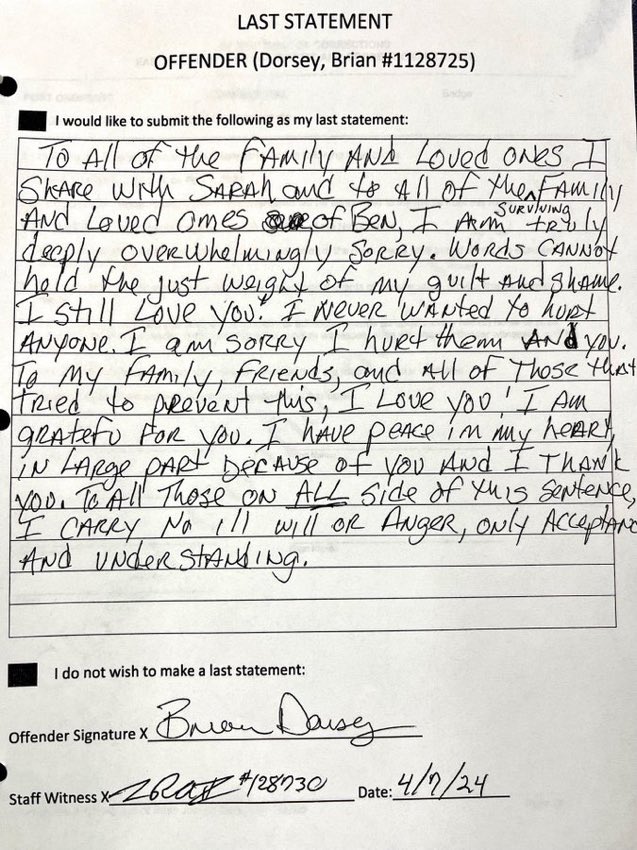 LAST STATEMENT
OFFENDER (Dorsey, Brian #1128725)
I would like to submit the following as my last statement:
To All of the Family And Loved ones I
Share with Sarah and to All of the Surviving Family
And Loved ones of Ben, I Am truly
deeply overwhelmingly Sorry. Words Cannot
hold the just weight of my guilt and Shame.
I Still Love you! I never wanted to hurt
Anyone. I am sorry I hurt them And you.
To My Family, Friends, and All of Those that
Tried to prevent this, I Love you! I Am
gratefu For you. I have peace in my heart,
in Large part because of you And I Thank
you. To All Those on ALL Side of this Sentence,
I carry No ill will or Anger, only Acceptanc
And understanding.
I do not wish to make a last statement:
Offender Signature X Brian Dorsey
Staff Witness X #128730 Date: 4/7/24